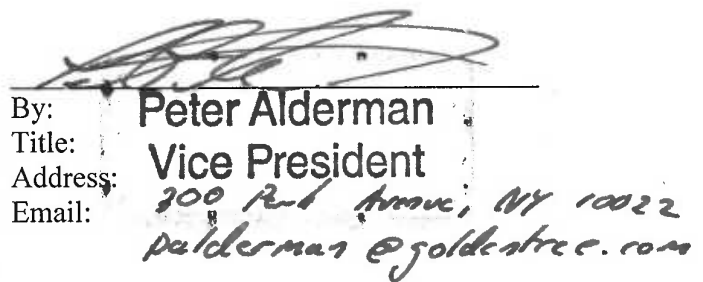 By: Peter Alderman
Title: Vice President
Address: 300 Park Avenue, NY 10022
Email: palderman@goldentree.com